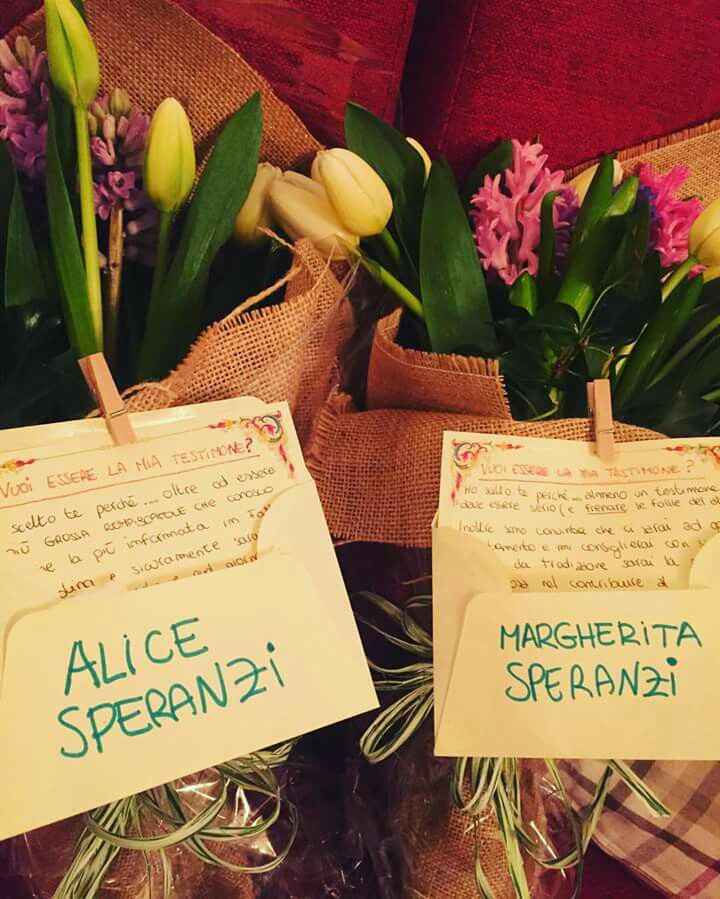 VUOI ESSERE LA MIA TESTIMONE?
scelto te perchè ... oltre ad essere
PIÙ GROSSA ROMPISCATOLE CHE CONOSCO
la più informata in
e sicuramente sarai
ALICE
SPERANZI
VUOI ESSERE LA MIA TESTIMONE?
Ho scelto te perchè ... almeno un testimone
deve essere serio (e frenare le follie del
Inoltre sono convinta che ci sarai ad
e mi consiglierai con
da tradizione sarai la
nel contribuire a
MARGHERITA
SPERANZI